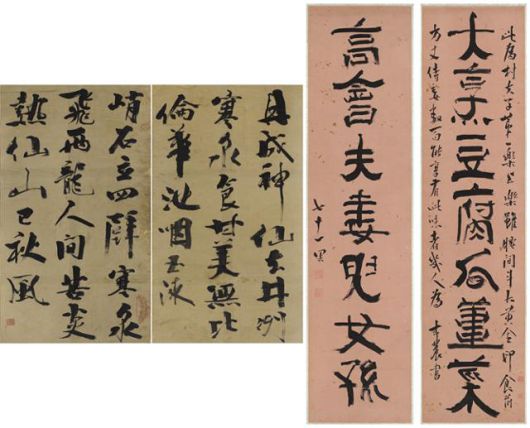 大烹豆腐瓜薑菜
此爲村夫子第一樂上樂雖腰間斗大黃金印食前
方丈侍妾數百能享有此味者幾人爲杏農書
高會夫妻兒女孫
七十一果
丹成神仙去井洌
寒泉食甘美無比
倫華池咽玉液
峭石立四壁寒泉
飛兩龍人間苦炎
熱仙山已秋風